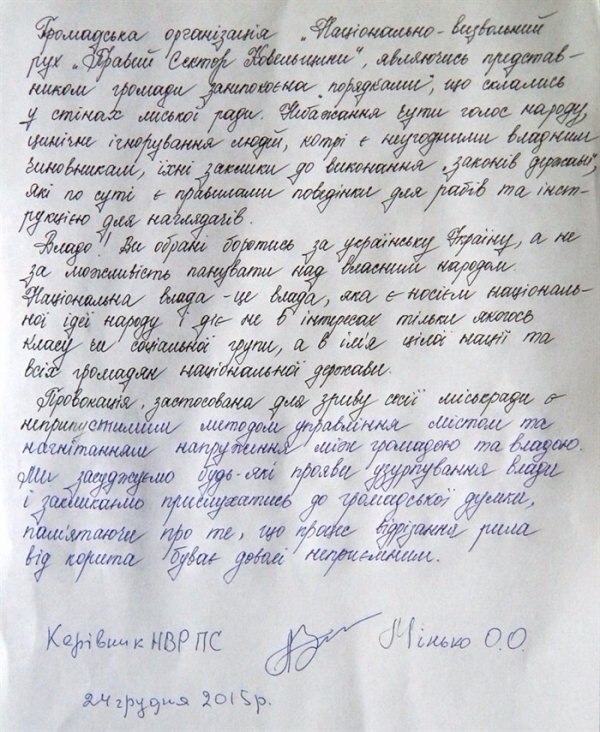 Громадська організація „Національно-визвольний
рух „Правий Сектор Ковельщини", являючись представ-
ником громади занепокоєна „порядками", що склались
у стінах міської ради. Небажання чути голос народу,
цинічне ігнорування людей, котрі є неугодними владним
чиновникам, їхні заклики до виконання „законів держави",
які по суті є правилами поведінки для рабів та інст-
рукцією для наглядачів.
Владо! Ви обрані боротись за українську Україну, а не
за можливість панувати над власним народом.
Національна влада - це влада, яка є носієм національ-
ної ідеї народу і діє не в інтересах тільки якогось
класу чи соціальної групи, а в ім'я цілої нації та
всіх громадян національної держави.
Провокація, застосована для зриву сесії міськради є
неприпустимим методом управління містом та
нагнітанням напруження між громадою та владою.
Ми засуджуємо будь-які прояви узурпування влади
і закликаємо прислухатись до громадської думки,
пам'ятаючи про те, що процес відрізання рила
від корита буває доволі неприємним.
Керівник НВР ПС Мінько О.О.
24 грудня 2015р.